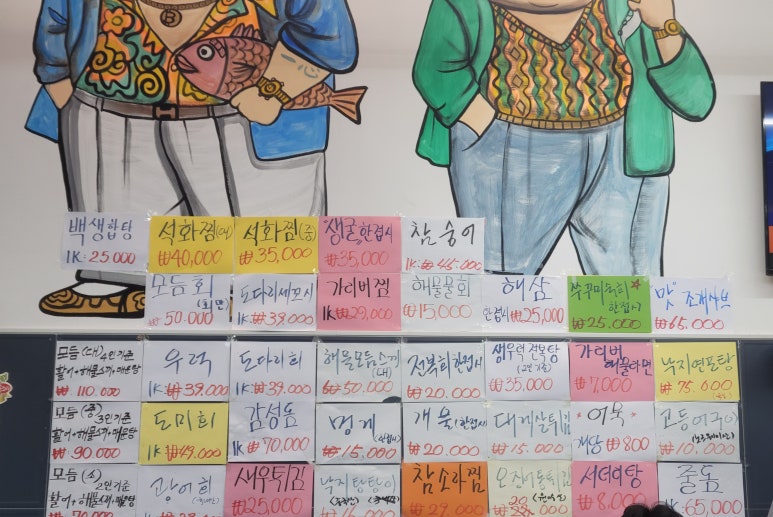 백생합탕
1K: 25,000
석화찜(대)
₩40,000
석화찜(중)
₩35,000
생굴한접시
₩35,000
참숭어
1K: ₩45,000
모듬회
50,000
도다리세꼬시
1K ₩39,000
가이버찜
1K ₩29,000
해물물회
₩15,000
해삼
한접시 ₩25,000
쭈꾸미
한접시
₩25,000
맛조개샤브
₩65,000
모듬 (대) 4인기준
활어+해물스끼+매운탕
₩ 110,000
우럭
1K: ₩39,000
도다리회
1K: ₩39,000
해물모듬스끼
(대)
50,000
전복회한접시
₩20,000
생우럭전복탕
(2인기준)
₩35,000
가이버
해물라면
₩7,000
낙지연포탕
₩75,000
모듬 (중) 3인기준
활어+해물스끼+매운탕
₩ 90,000
도미회
1K ₩49,000
감성돔
1K ₩70,000
멍게
₩15,000
개불(한접시)
₩20,000
대게살튀김
₩15,000
어묵
개당 ₩800
고등어구이
(노르웨이산)
₩10,000
모듬 (소) 2인기준
활어+해물스끼+매운탕
70,000
광어회
새우튀김
₩25,000
낙지탕탕이
참소라찜
₩29,000
오징어통튀김
20,000
서더리탕
₩8,000
줄돔
1K: 65,000